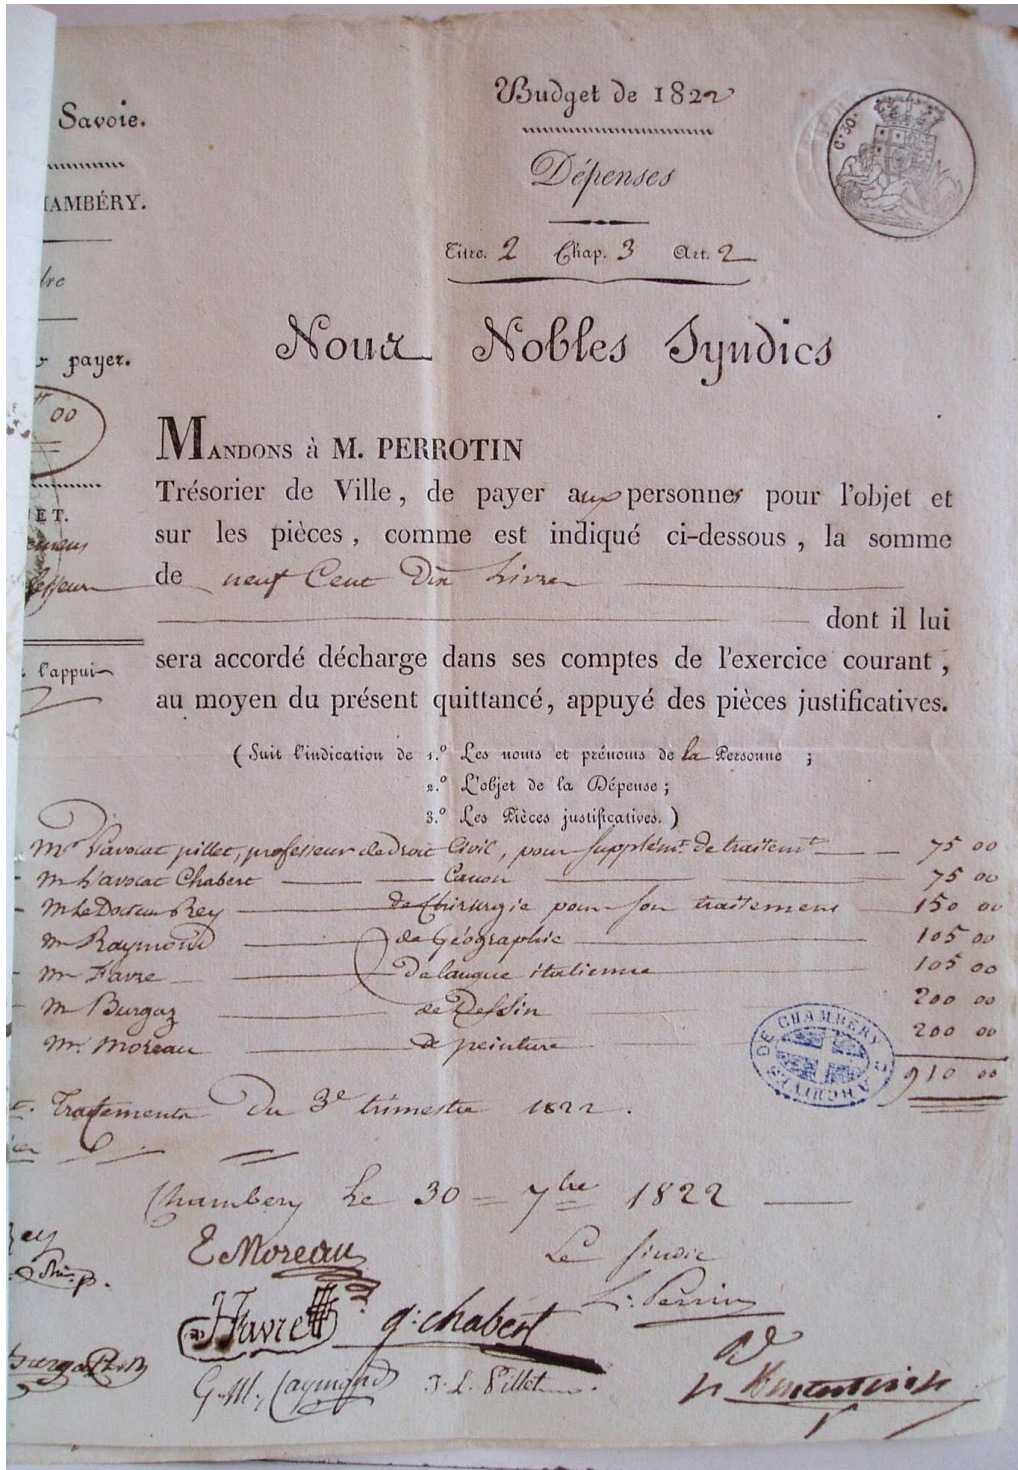 Savoie.
HAMBÉRY.
dre
payer.
00
ET.
l'appui
Budget de 1822
Dépenses
Titre. 2 Chap. 3 Art. 2
C. 30.
Nous Nobles Syndics
MANDONS à M. PERROTIN
Trésorier de Ville, de payer aux personnes pour l'objet et
sur les pièces, comme est indiqué ci-dessous, la somme
de neuf Cent Dix Livres
dont il lui
sera accordé décharge dans ses comptes de l'exercice courant,
au moyen du présent quittancé, appuyé des pièces justificatives.
(Suit l'indication de 1.º Les noms et prénoms de la Personne ;
2.º L'objet de la Dépense ;
3.º Les Pièces justificatives. )
Mr L'avocat pillet, professeur de Droit Civil, pour supplémt. de traitemt. 75 00
Mr L'avocat Chabert Canon 75 00
Mr Le Docteur Rey de Chirurgie pour son traitement 150 00
Mr Raymond de Géographie 105 00
Mr Favre De langue italienne 105 00
Mr Burgaz de Dessin 200 00
Mr. Moreau de peinture 200 00
910 00
DE CHAMBÉRY
ARCHIVES
Traitements Du 3e trimestre 1822.
Chambéry Le 30 7bre 1822
E Moreau
Le sindic
L. Perrin
Favre
g. chabert
G. M. Raymond
J. L. Pillet